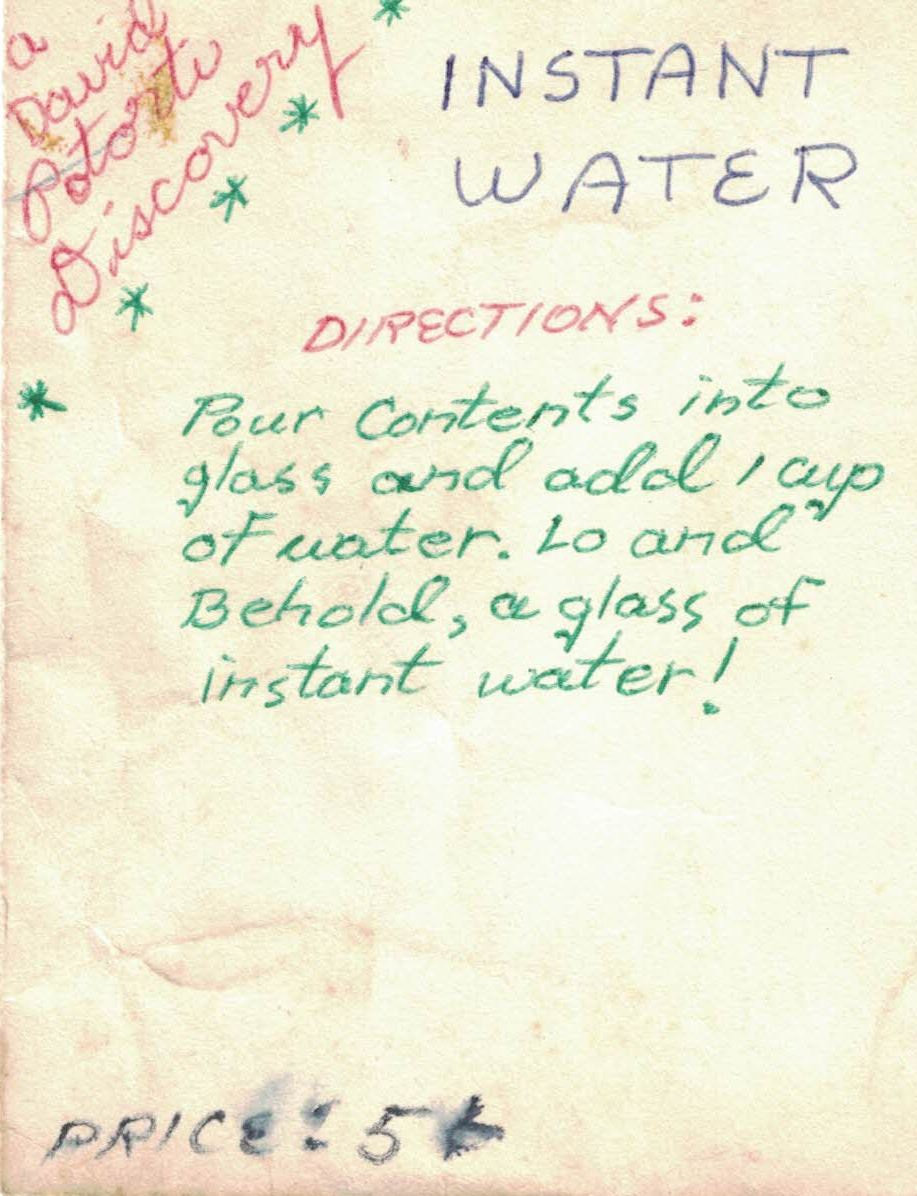 a
David
Potorti
Discovery
INSTANT
WATER
DIRECTIONS:
Pour Contents into
glass and add 1 cup
of water. Lo and
Behold, a glass of
instant water!
PRICE: 5¢